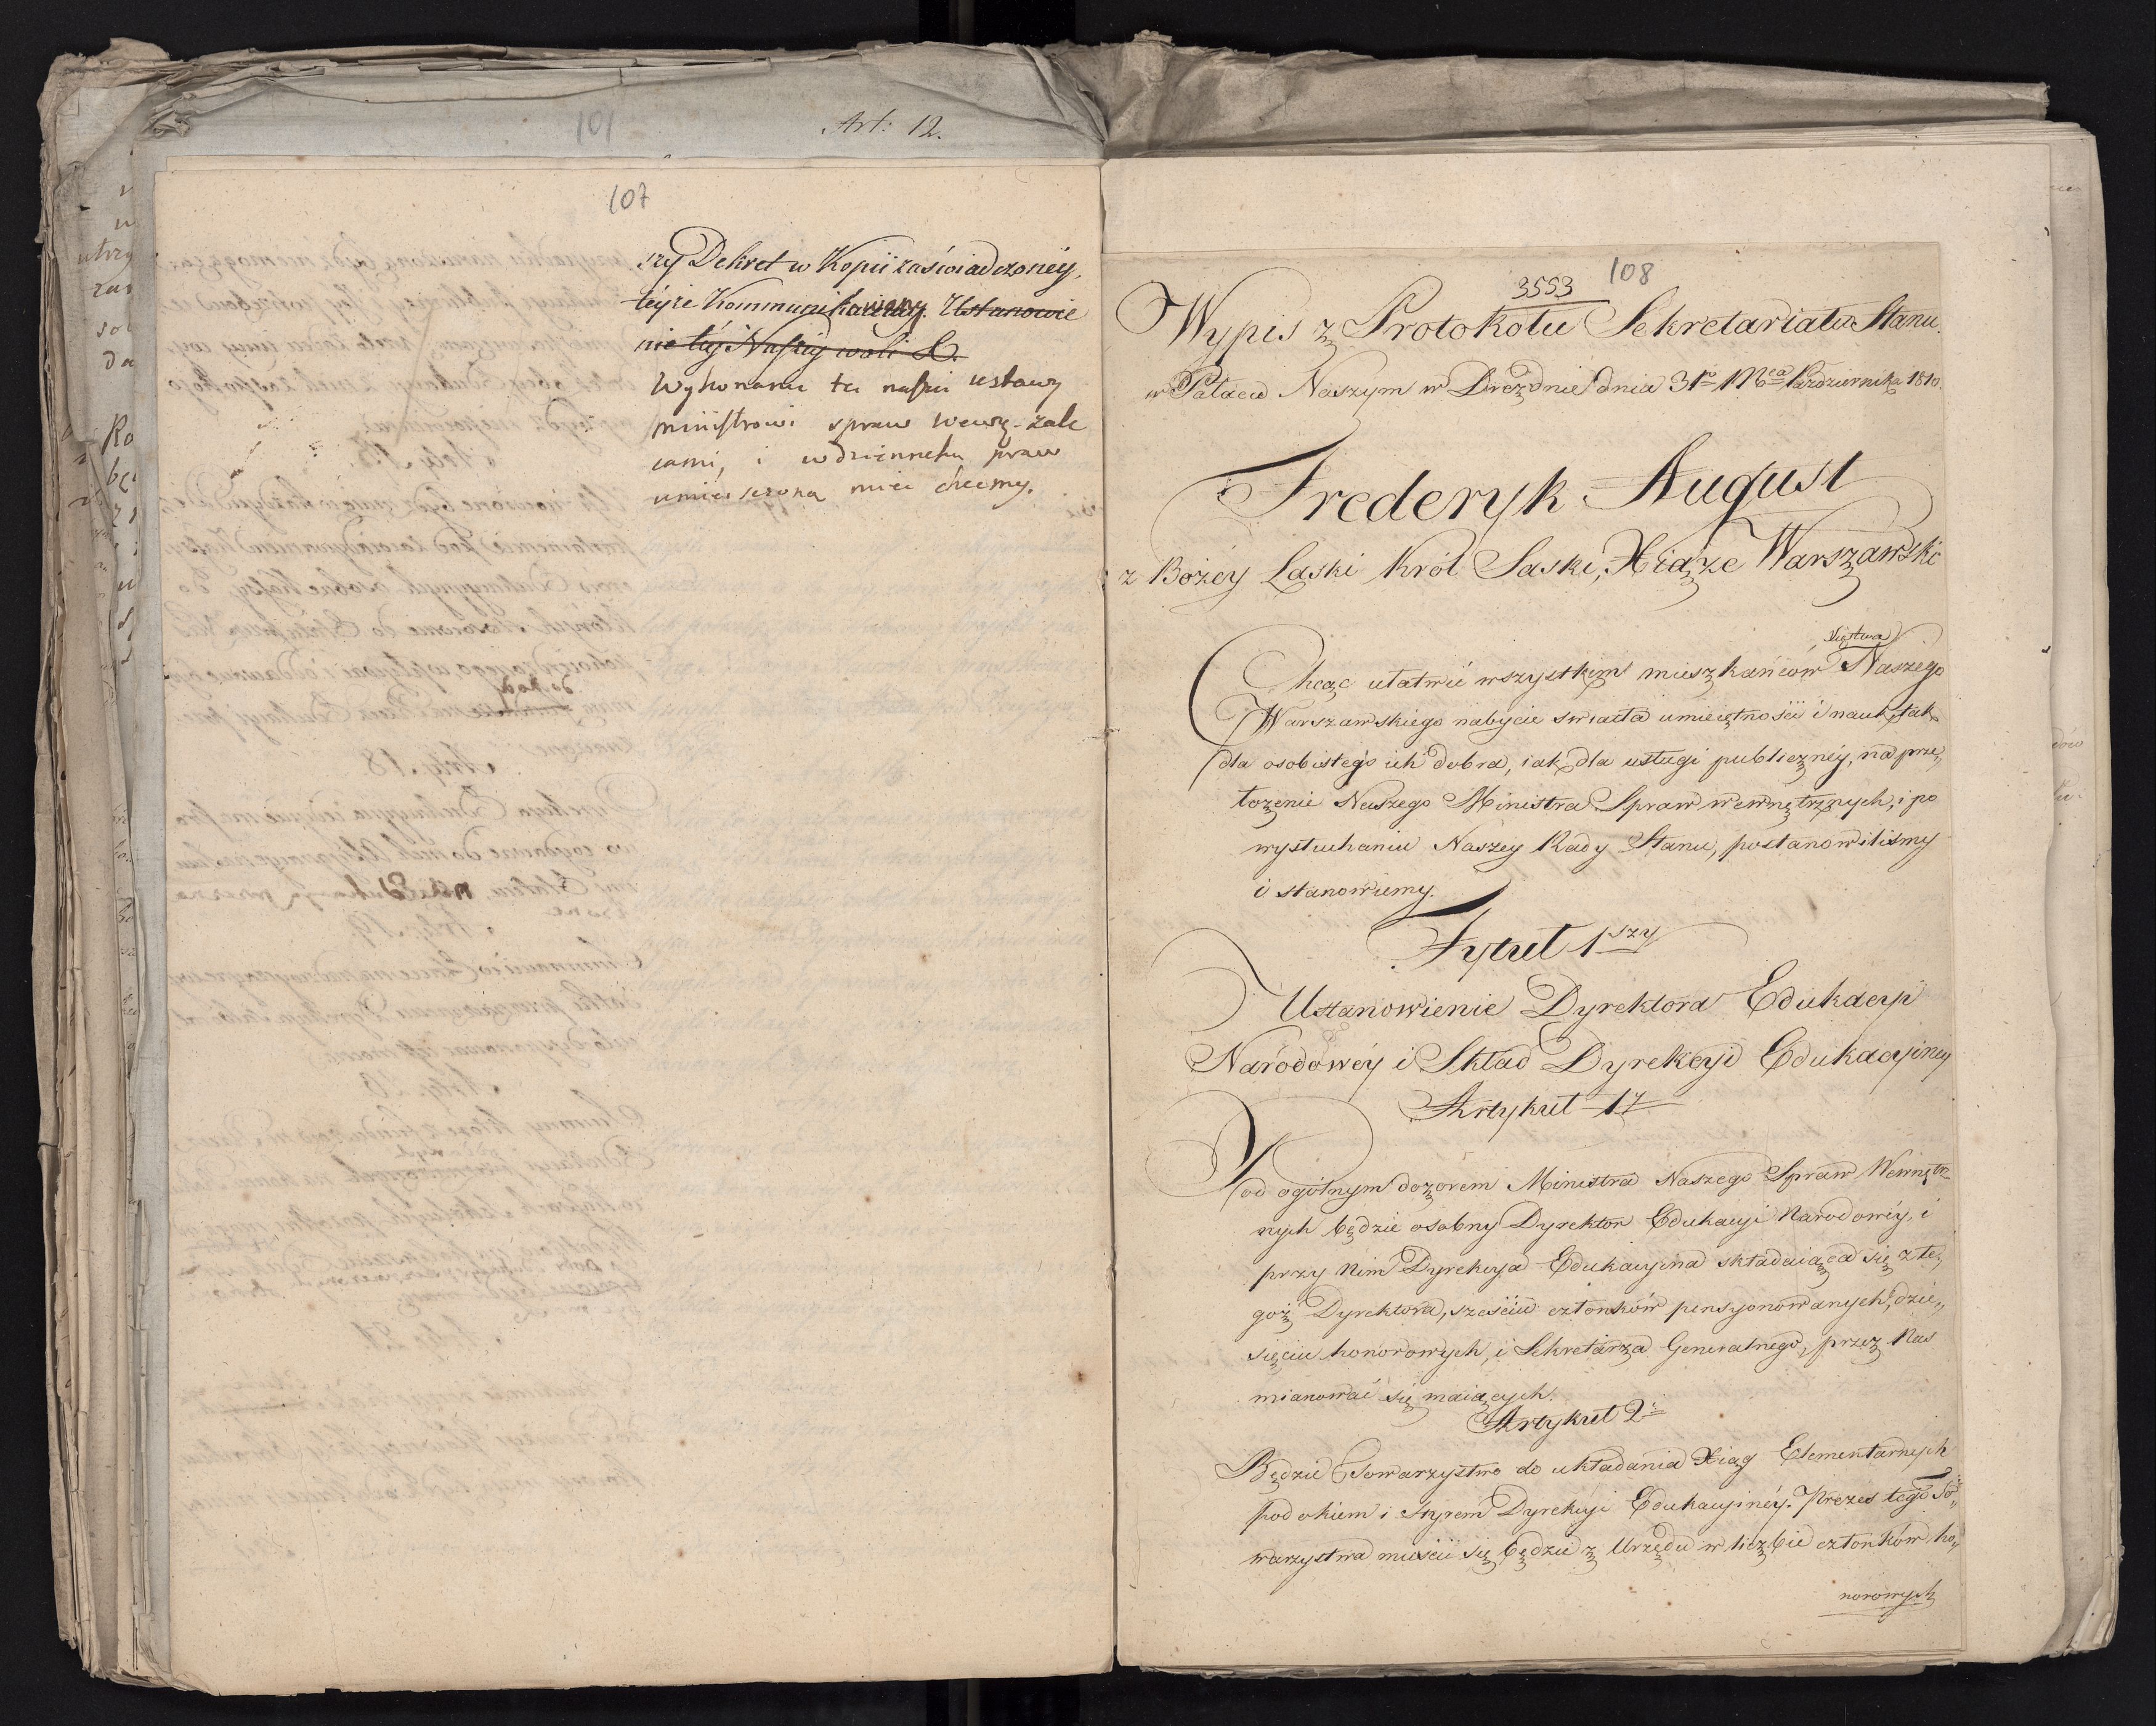 101
Art: 12.
107
szy Dekret w Kopii zaświadczonéy,
téyże Kommunikowany. Ustanowie
nie téy Naszey woli &.
Wykonanie tei naszéi ustawy
ministrowi spraw wewn. zale
camy, i w dzienniku praw
umieszczona mieć chcemy.
108
3553
Wypis z Protokołu Sekretariatu Stanu.
w Pałacu Naszym w Dreźnie dnia 31go Mca Października 1810.
Frederyk August
z Bożéy Łaski Król Saski, Xiąże Warszawski
Xięstwa
Chcąc ułatwić wszystkim mieszkańców Naszego
Warszawskiego nabycie swiatła umieiętności i nauk, tak
dla osobistego ich dobra, iak dla usługi publicznéy, na prze„
łożenie Naszego Ministra Spraw wewnętrznych, i po
wysłuchaniu Naszey Rady Stanu, postanowiliśmy
i stanowiemy.
Tytuł 1szy
Ustanowienie Dyrektora Edukacyi
Narodowéy i Skład Dyrekcyi Edukacyiney
Artykuł 1y
Pod ogólnym dozorem Ministra Naszego Spraw Wewnętrz„
nych będzie osobny Dyrektor Edukacyi Narodowéy, i
przy nim Dyrekcya Edukacyina składaiąca się z te„
goż Dyrektora, sześciu członków pensyonowanych, dzie„
sięciu honorowych, i Sekretarza Generalnego, przez Nas
mianować się maiących.
Artykuł 2i
Będzie Towarzystwo do układania Xiąg Elementarnych
pod okiem i styrem Dyrekcyi Edukacyinéy. Prezes tego To„
warzystwa mieścić się będzie z Urzędu w liczbie członków ho„
norowych